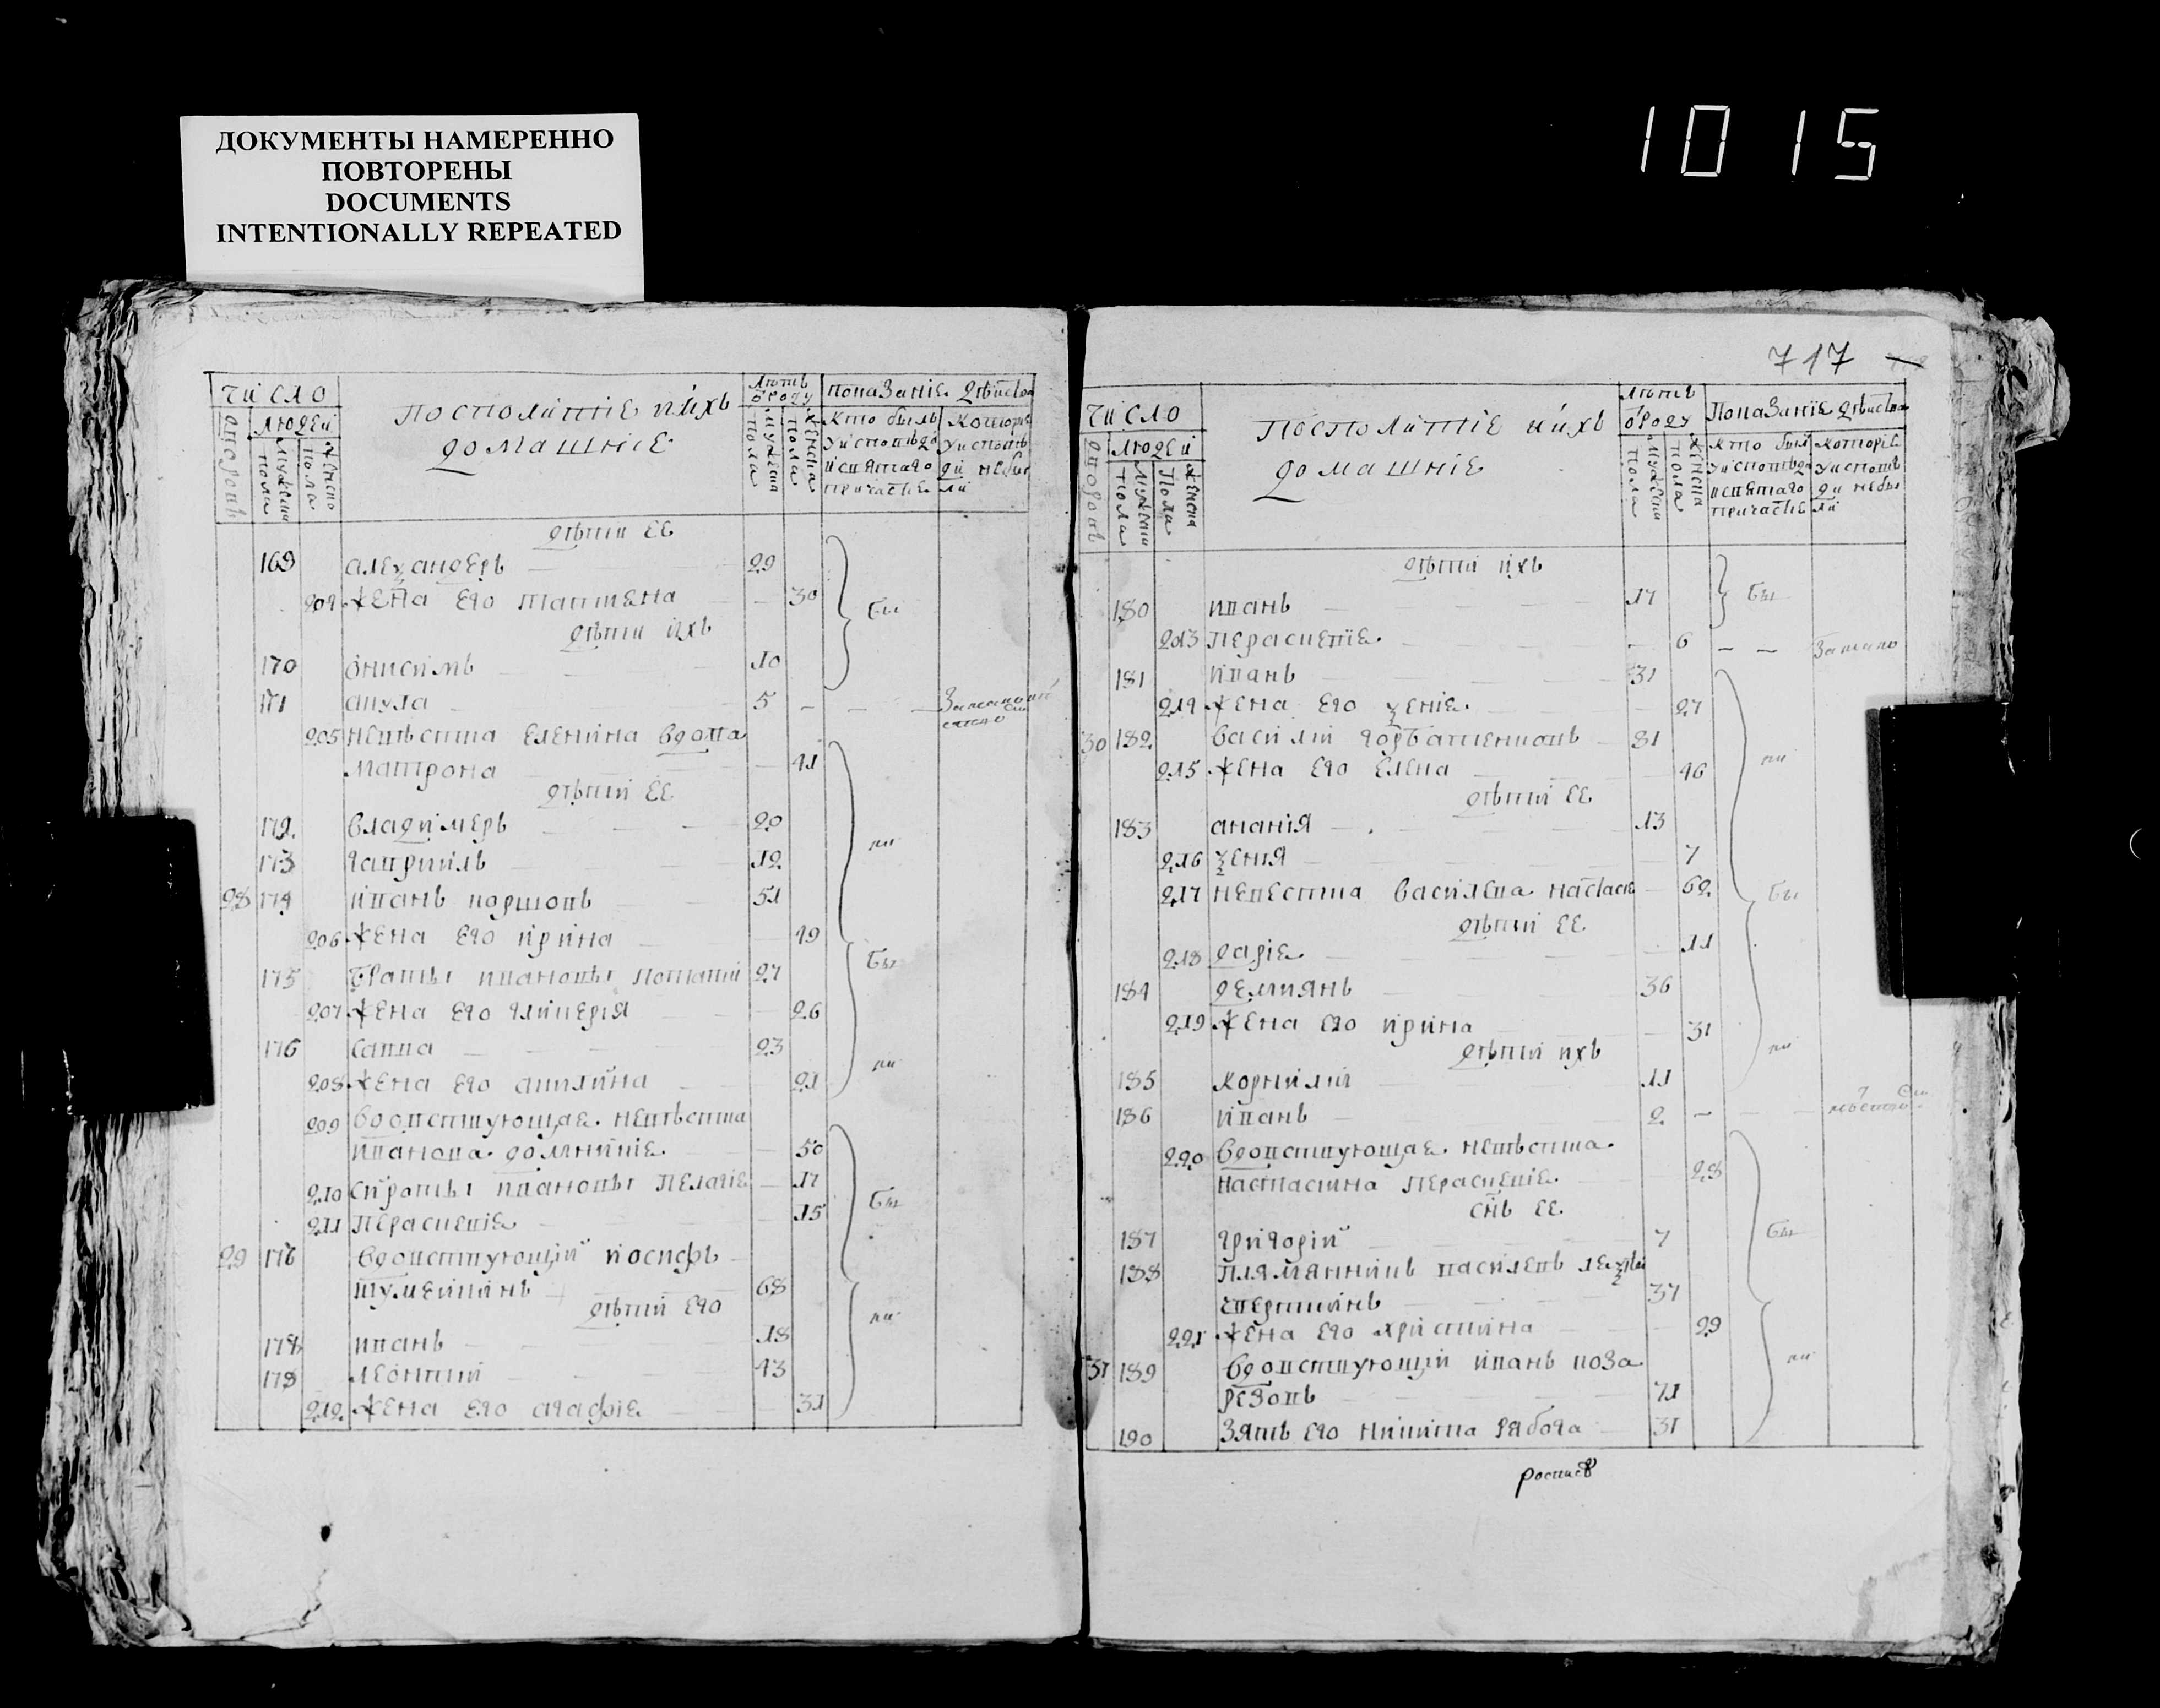 ДОКУМЕНТЫ НАМЕРЕННО
ПОВТОРЕНЫ
DOCUMENTS
INTENTIONALLY REPEATED
1015
ЧИСЛО
дворовъ
людей
мужска пола
женска пола
посполитіе ихъ
домашніе
лѣтъ
ѿ роду
мужеска пола
женска пола
показаніе дѣйства
кто былъ
у исповѣди
и святаго
причастіе
которіе
у исповѣ
ди не бы
ли
дѣти ее
169 алеѯандеръ 29
204 жена его татіена 30
бы
дѣти ихъ
170 онисимъ 10
171 вкула 5
205 невѣстка еленина вдова
матрона 41
дѣти ее
172 владимеръ 20
173 гавріилъ 12
ли
28 174 иванъ коршовъ 51
206 жена его ирина 49
175 браты ивановы потапій 27
бы
207 жена его гликерія 26
176 савва 23
ли
208 жена его акилина 21
209 вдовствующая невѣстка
иванова домникіе 50
210 сироты ивановы пелагіе 17
бы
211 параскевіе 15
29 176 вдовствующій іосифъ
шумейкинъ 68
дѣти его
ли
178 иванъ 18
178 леонтій 43
212 жена его агафіе 31
717
ЧИСЛО
дворовъ
людей
мужеска пола
женска пола
посполитіе ихъ
домашніе
лѣтъ
ѿ роду
мужеска пола
женска пола
показаніе дѣйства
кто былъ
у исповѣди
и святаго
причастіе
которіе
у исповѣ
ди не бы
ли
дѣти ихъ
180 иванъ 17
бы
213 параскевіе 6
181 иванъ 31
214 жена его ѯеніе 27
30 182 василій горбатенковъ 81
ли
215 жена его елена 46
дѣти ее
183 ананія 13
216 ѯенія 7
217 невестка василева настасія 62
бы
дѣти ее
218 даріе 11
184 деміянъ 36
219 жена его ирина 31
дѣти ихъ
ли
185 корнилій 11
186 иванъ 2
220 вдовствующая невѣстка
настасіина параскевіе 28
снъ ее
187 григорій 7
бы
188 племянникъ василевъ алеѯѣй
37
221 жена его христина 29
31 189 вдовствующій иванъ коза
резовъ 71
ли
190 зять его никита рябога 31
роспись